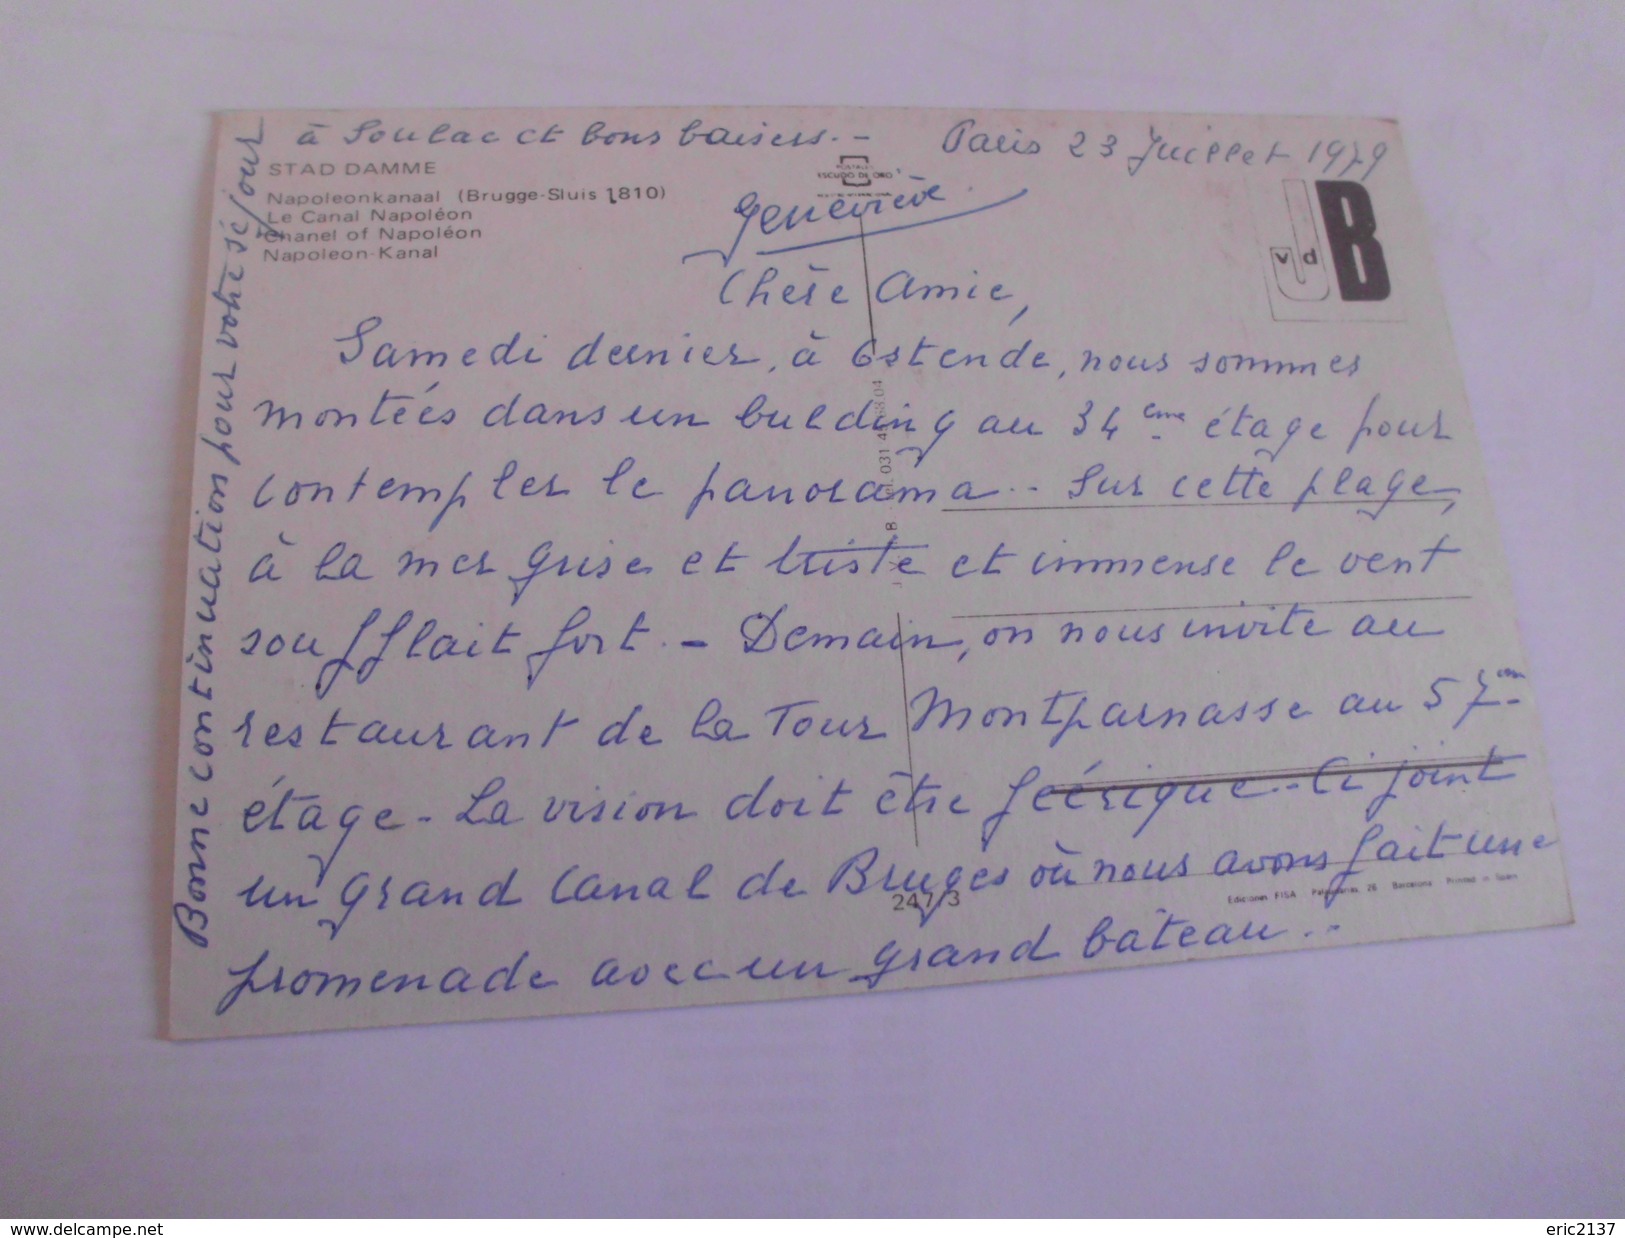 à Soulac et bons baisers. -
Paris 23 Juillet 1979
STAD DAMME
Napoleonkanaal (Brugge-Sluis 1810)
Le Canal Napoléon
Chanel of Napoléon
Napoleon-Kanal
ESCUDO DE ORO
vd B
Geneviève.
Chère Amie,
Samedi dernier, à Ostende, nous sommes
montées dans un bulding au 34 ème étage pour
contempler le panorama.. Sur cette plage,
à la mer grise et triste et immense le vent
soufflait fort. - Demain, on nous invite au
restaurant de la Tour Montparnasse au 57 ème
étage - La vision doit être féérique - Ci joint
un grand Canal de Bruges où nous avons fait une
promenade avec un grand bâteau..
247/3
Ediciones FISA Barcelona Printed in Spain
Bonne continuation pour votre séjour
www.delcampe.net
eric2137